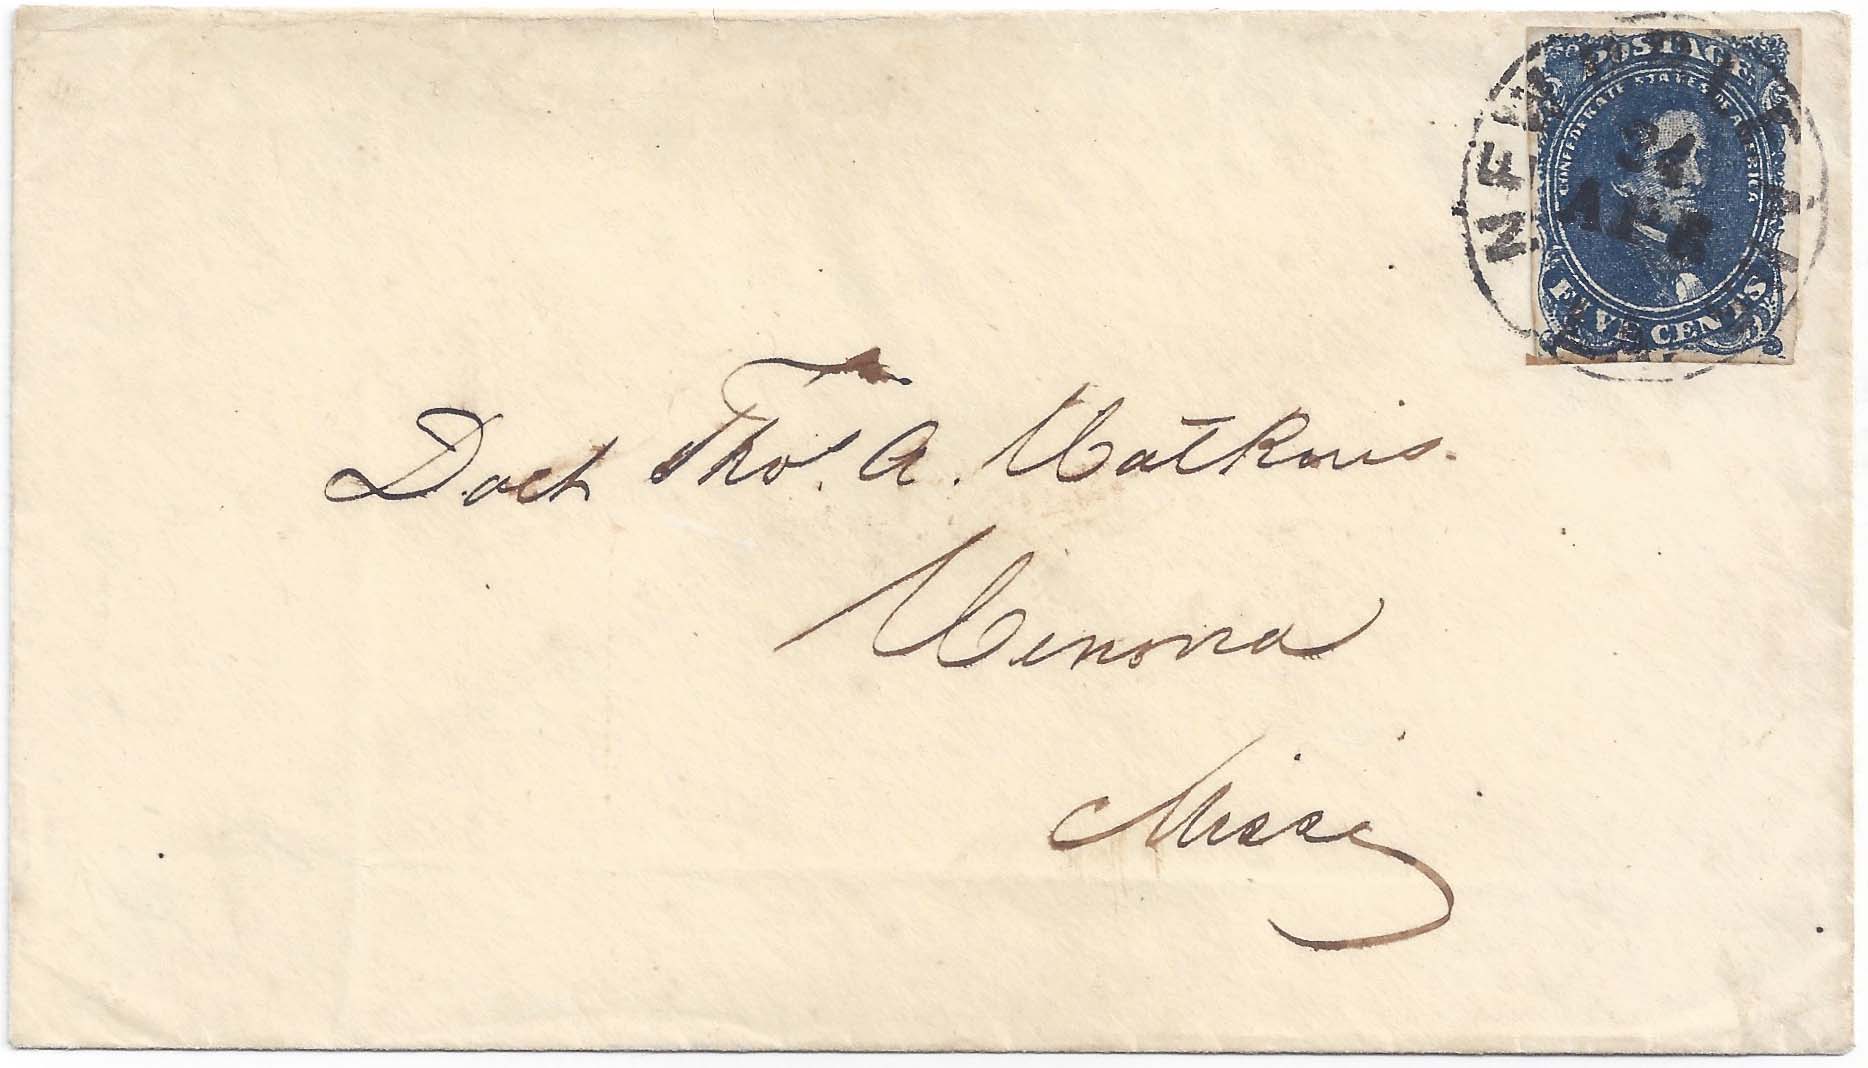 POSTAGE
CONFEDERATE STATES OF AMERICA
FIVE CENTS
NEW
24
APR
Doct Thos. A. Watkins.
Winona
Missi